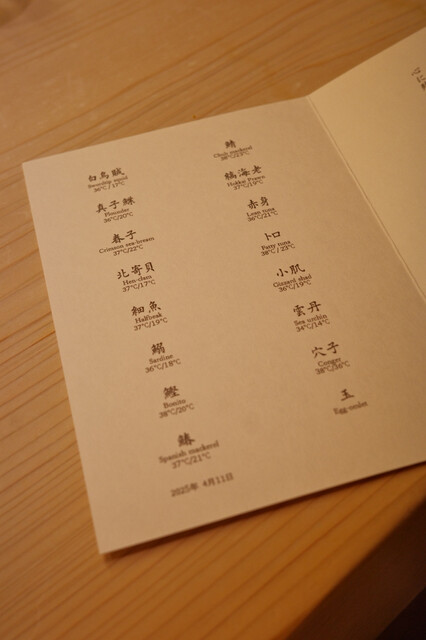 白烏賊
Swordtip squid
36℃/17℃
真子鰈
Flounder
36℃/20℃
春子
Crimson sea-bream
37℃/22℃
北寄貝
Hen-clam
37℃/17℃
細魚
Halfbeak
37℃/19℃
鰯
Sardine
36℃/18℃
鰹
Bonito
38℃/20℃
鰆
Spanish mackerel
37℃/21℃
2025年 4月11日
鯖
Chub mackerel
縞海老
Hokkai Prawn
37℃/19℃
赤身
Lean tuna
36℃/21℃
トロ
Fatty tuna
38℃ / 23℃
小肌
Gizzard shad
36℃/19℃
雲丹
Sea urchin
34℃/14℃
穴子
Conger
38℃/36℃
玉
Egg omlet
心
に